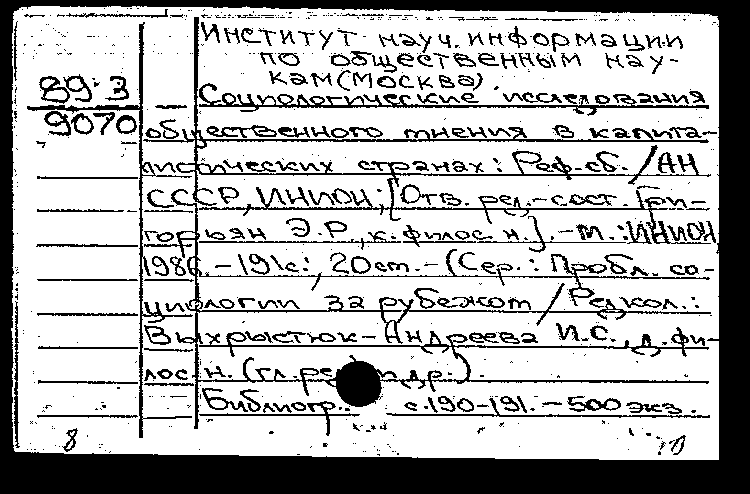 Институт науч. информации
по общественным нау-
кам (Москва)
89-3
Социологические исследования
9070
общественного мнения в капита-
листических странах: Реф. сб. / АН
СССР, ИНИОН; [Отв. ред.-сост. Гри-
горьян Э.Р., к. филос. н.]. - М.: ИНИОН,
1986. - 191с.; 20см. - (Сер.: Пробл. со-
циологии за рубежом / Редкол.:
Выхрыстюк-Андреева И.С., д. фи-
лос. н. (гл. ред.) и др.).
Библиогр.: с. 190-191. - 500 экз.
8